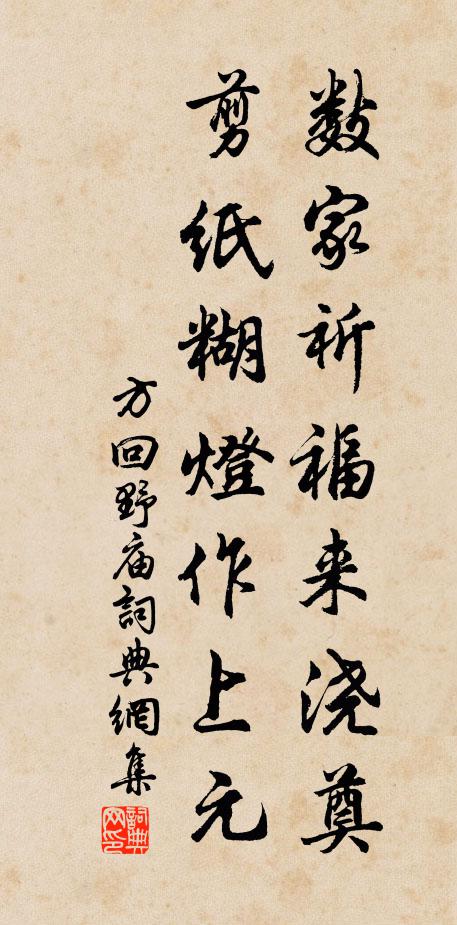 数家祈福来浇奠
剪紙糊燈作上元
方回野庙詞典網集
詞典网印